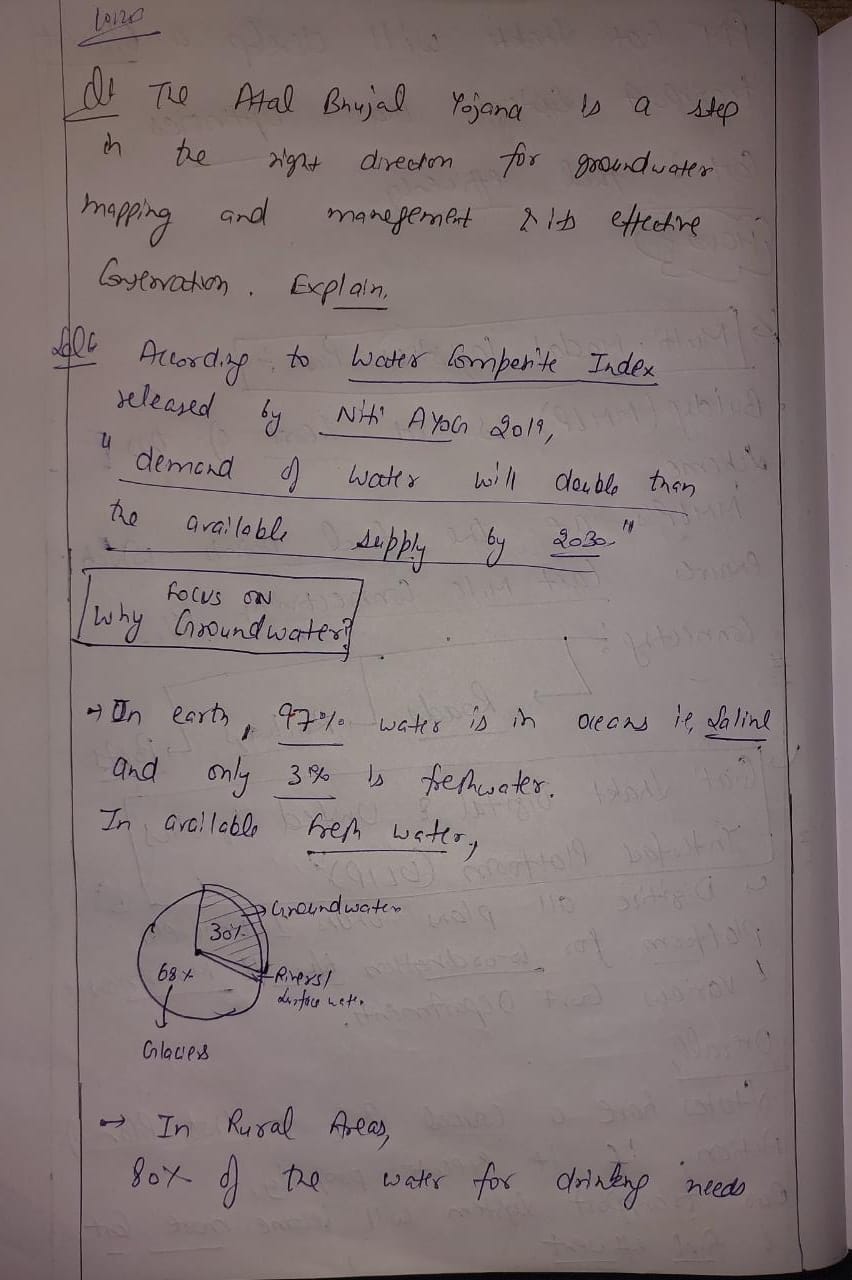 Q1 The Atal Bhujal Yojana is a step
in the right direction for groundwater
mapping and management & its effective
Conservation. Explain.
According to Water Composite Index
released by Niti AYOG 2019,
" demand of water will double than
the available supply by 2030."
Focus on
Why Groundwater?
→ In earth, 97% water is in oceans ie, Saline
and only 3% is freshwater.
In available fresh water,
→ Groundwater
30%
68%
Rivers/
Surface water
Glaciers
→ In Rural Areas,
80% of the water for drinking needs